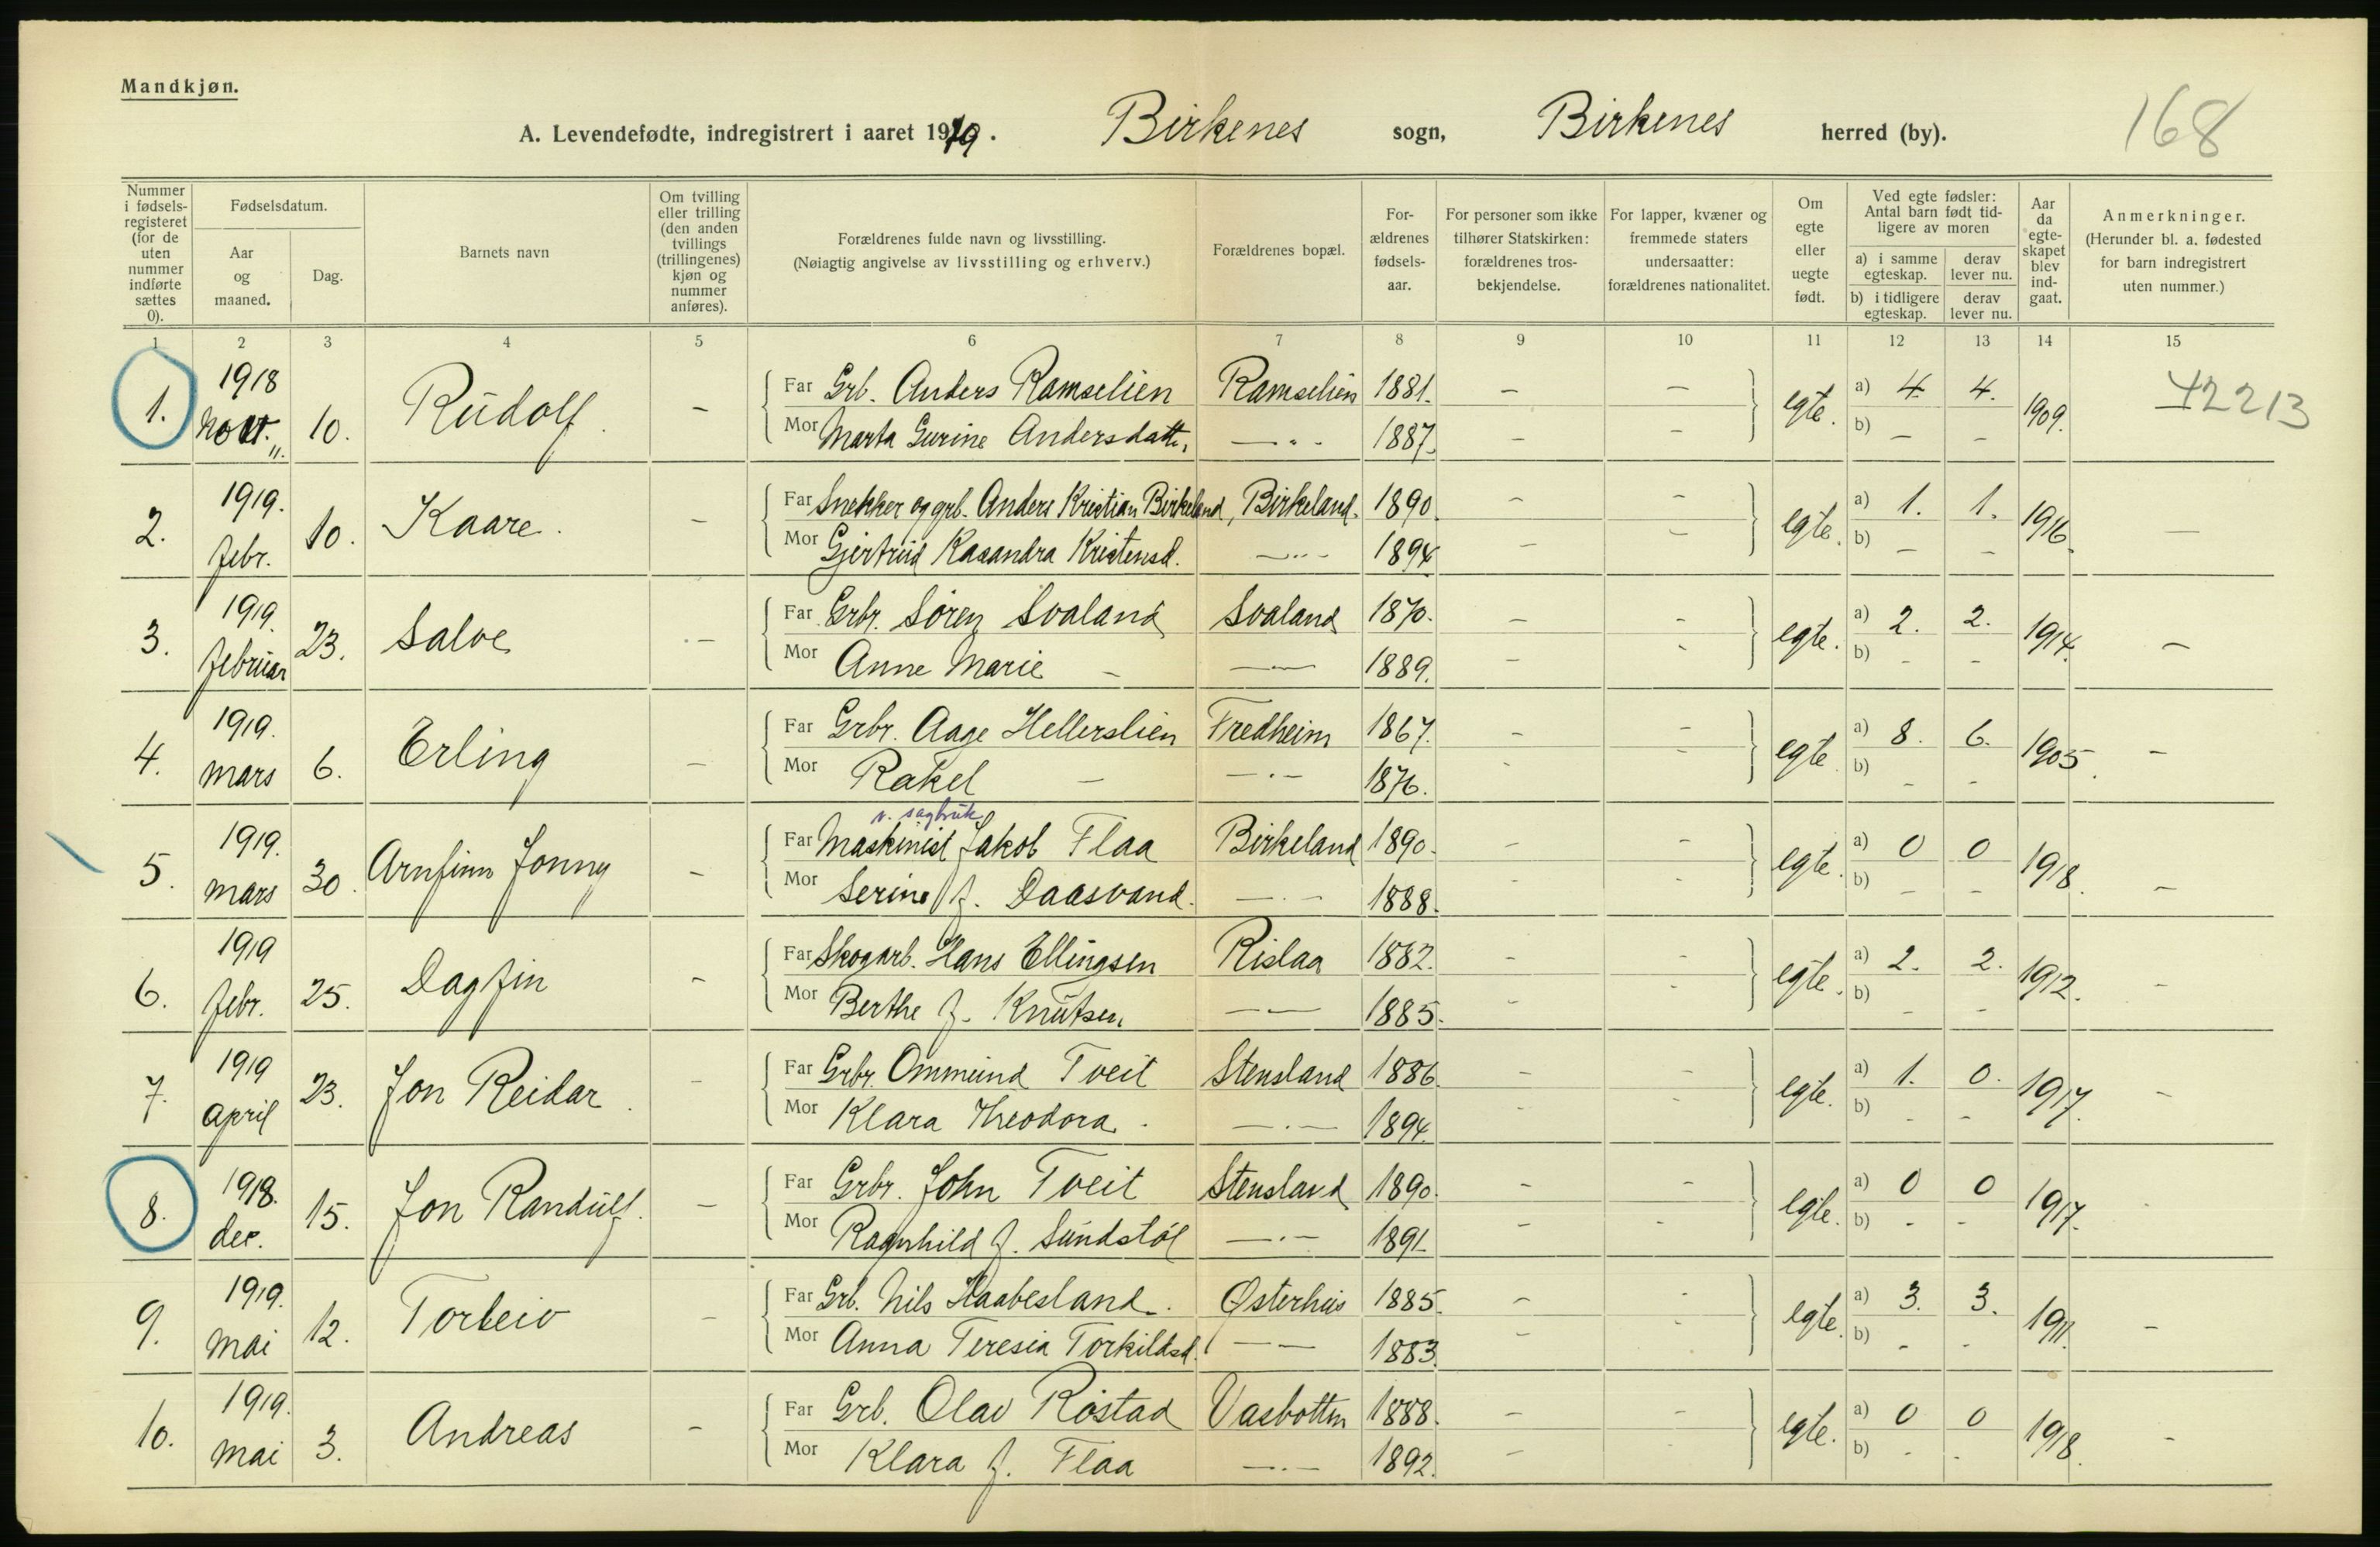 Mandkjøn.
168
A. Levendefødte, indregistrert i aaret 1919. Birkenes sogn, Birkenes herred (by).
Nummer i fødsels-registeret (for de uten nummer indførte sættes 0).
Fødselsdatum.
Aar og maaned.
Dag.
Barnets navn
Om tvilling eller trilling (den anden tvillings (trillingenes) kjøn og nummer anføres).
Forældrenes fulde navn og livsstilling.
(Nøiagtig angivelse av livsstilling og erhverv.)
Forældrenes bopæl.
For-ældrenes fødsels-aar.
For personer som ikke tilhører Statskirken: forældrenes tros-bekjendelse.
For lapper, kvæner og fremmede staters undersaatter: forældrenes nationalitet.
Om egte eller uegte født.
Ved egte fødsler: Antal barn født tid-ligere av moren
a) i samme egteskap.
derav lever nu.
b) i tidligere egteskap.
derav lever nu.
Aar da egte-skapet blev ind-gaat.
Anmerkninger.
(Herunder bl. a. fødested for barn indregistrert uten nummer.)
1 2 3 4 5 6 7 8 9 10 11 12 13 14 15
1. 1918 Novr. 10. Rudolf. – Far Grb. Anders Ramselien Ramselien 1881. – – egte. a) 4. 4. 1909. 42213
Mor Marta Gurine Andersdattr. —„- 1887. – – b) – –
2. 1919. febr. 10. Kaare. – Far Snekker og grb. Anders Kristian Birkeland, Birkeland. 1890. – – egte. a) 1. 1. 1916. –
Mor Gjertrud Kasandra Kristensd. —„- 1894 – – b) – –
3. 1919. februar 23. Salve – Far Grbr. Sören Svaland Svaland 1870. – – egte. a) 2. 2. 1914. –
Mor Anne Marie – — 1889. – - b) - -
4. 1919. mars 6. Erling – Far Grbr. Aage Hellerslien Fredheim 1867. – – egte. a) 8. 6. 1905. –
Mor Rakel – —·- 1876. - – b) - -
v. sagbruk
5. 1919. mars 30. Arnfinn Jonny – Far Maskinist Jakob Flaa Birkeland 1890. – – egte. a) 0 0 1918. –
Mor Serine f. Daasvand. —·- 1888. - - b) – –
6. 1919 febr. 25. Dagfin – Far Skogarb. Hans Ellingsen Rislaa 1882. - – egte. a) 2. 2. 1912. -
Mor Berthe f. Knutsen — 1885. - - b) - -
7. 1919 april 23. Jon Reidar. – Far Grbr. Ommund Tveit Stensland 1886. – - egte. a) 1. 0. 1917. -
Mor Klara Theodora. —·— 1894. - - b) - –
8. 1918. dec. 15. Jon Randulf. – Far Grbr. John Tveit Stensland 1890. – – egte. a) 0 0 1917.
Mor Ragnhild f. Sundstöl —·- 1891 – – b) - –
9. 1919. mai 12. Torleiv – Far Grb. Nils Haabesland. Østerhus 1885. – - egte. a) 3. 3. 1911. –
Mor Anna Teresia Torkildsd. — 1883. – - b) - -
10. 1919. mai 3. Andreas – Far Grb. Olav Röstad Vasbotten 1888. – – egte. a) 0 0 1918. -
Mor Klara f. Flaa —·- 1892. – - b) - -